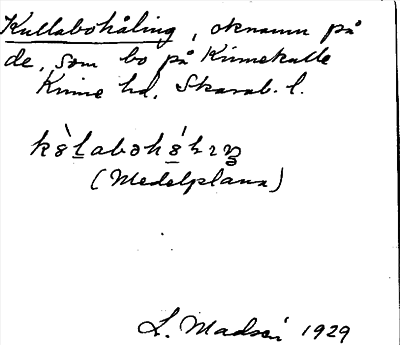 Kullabohåling, öknamn på
de, som bo på Kinnekulle
Kinne hd. Skarab. l.
(Medelplana)
L. Madsén 1929